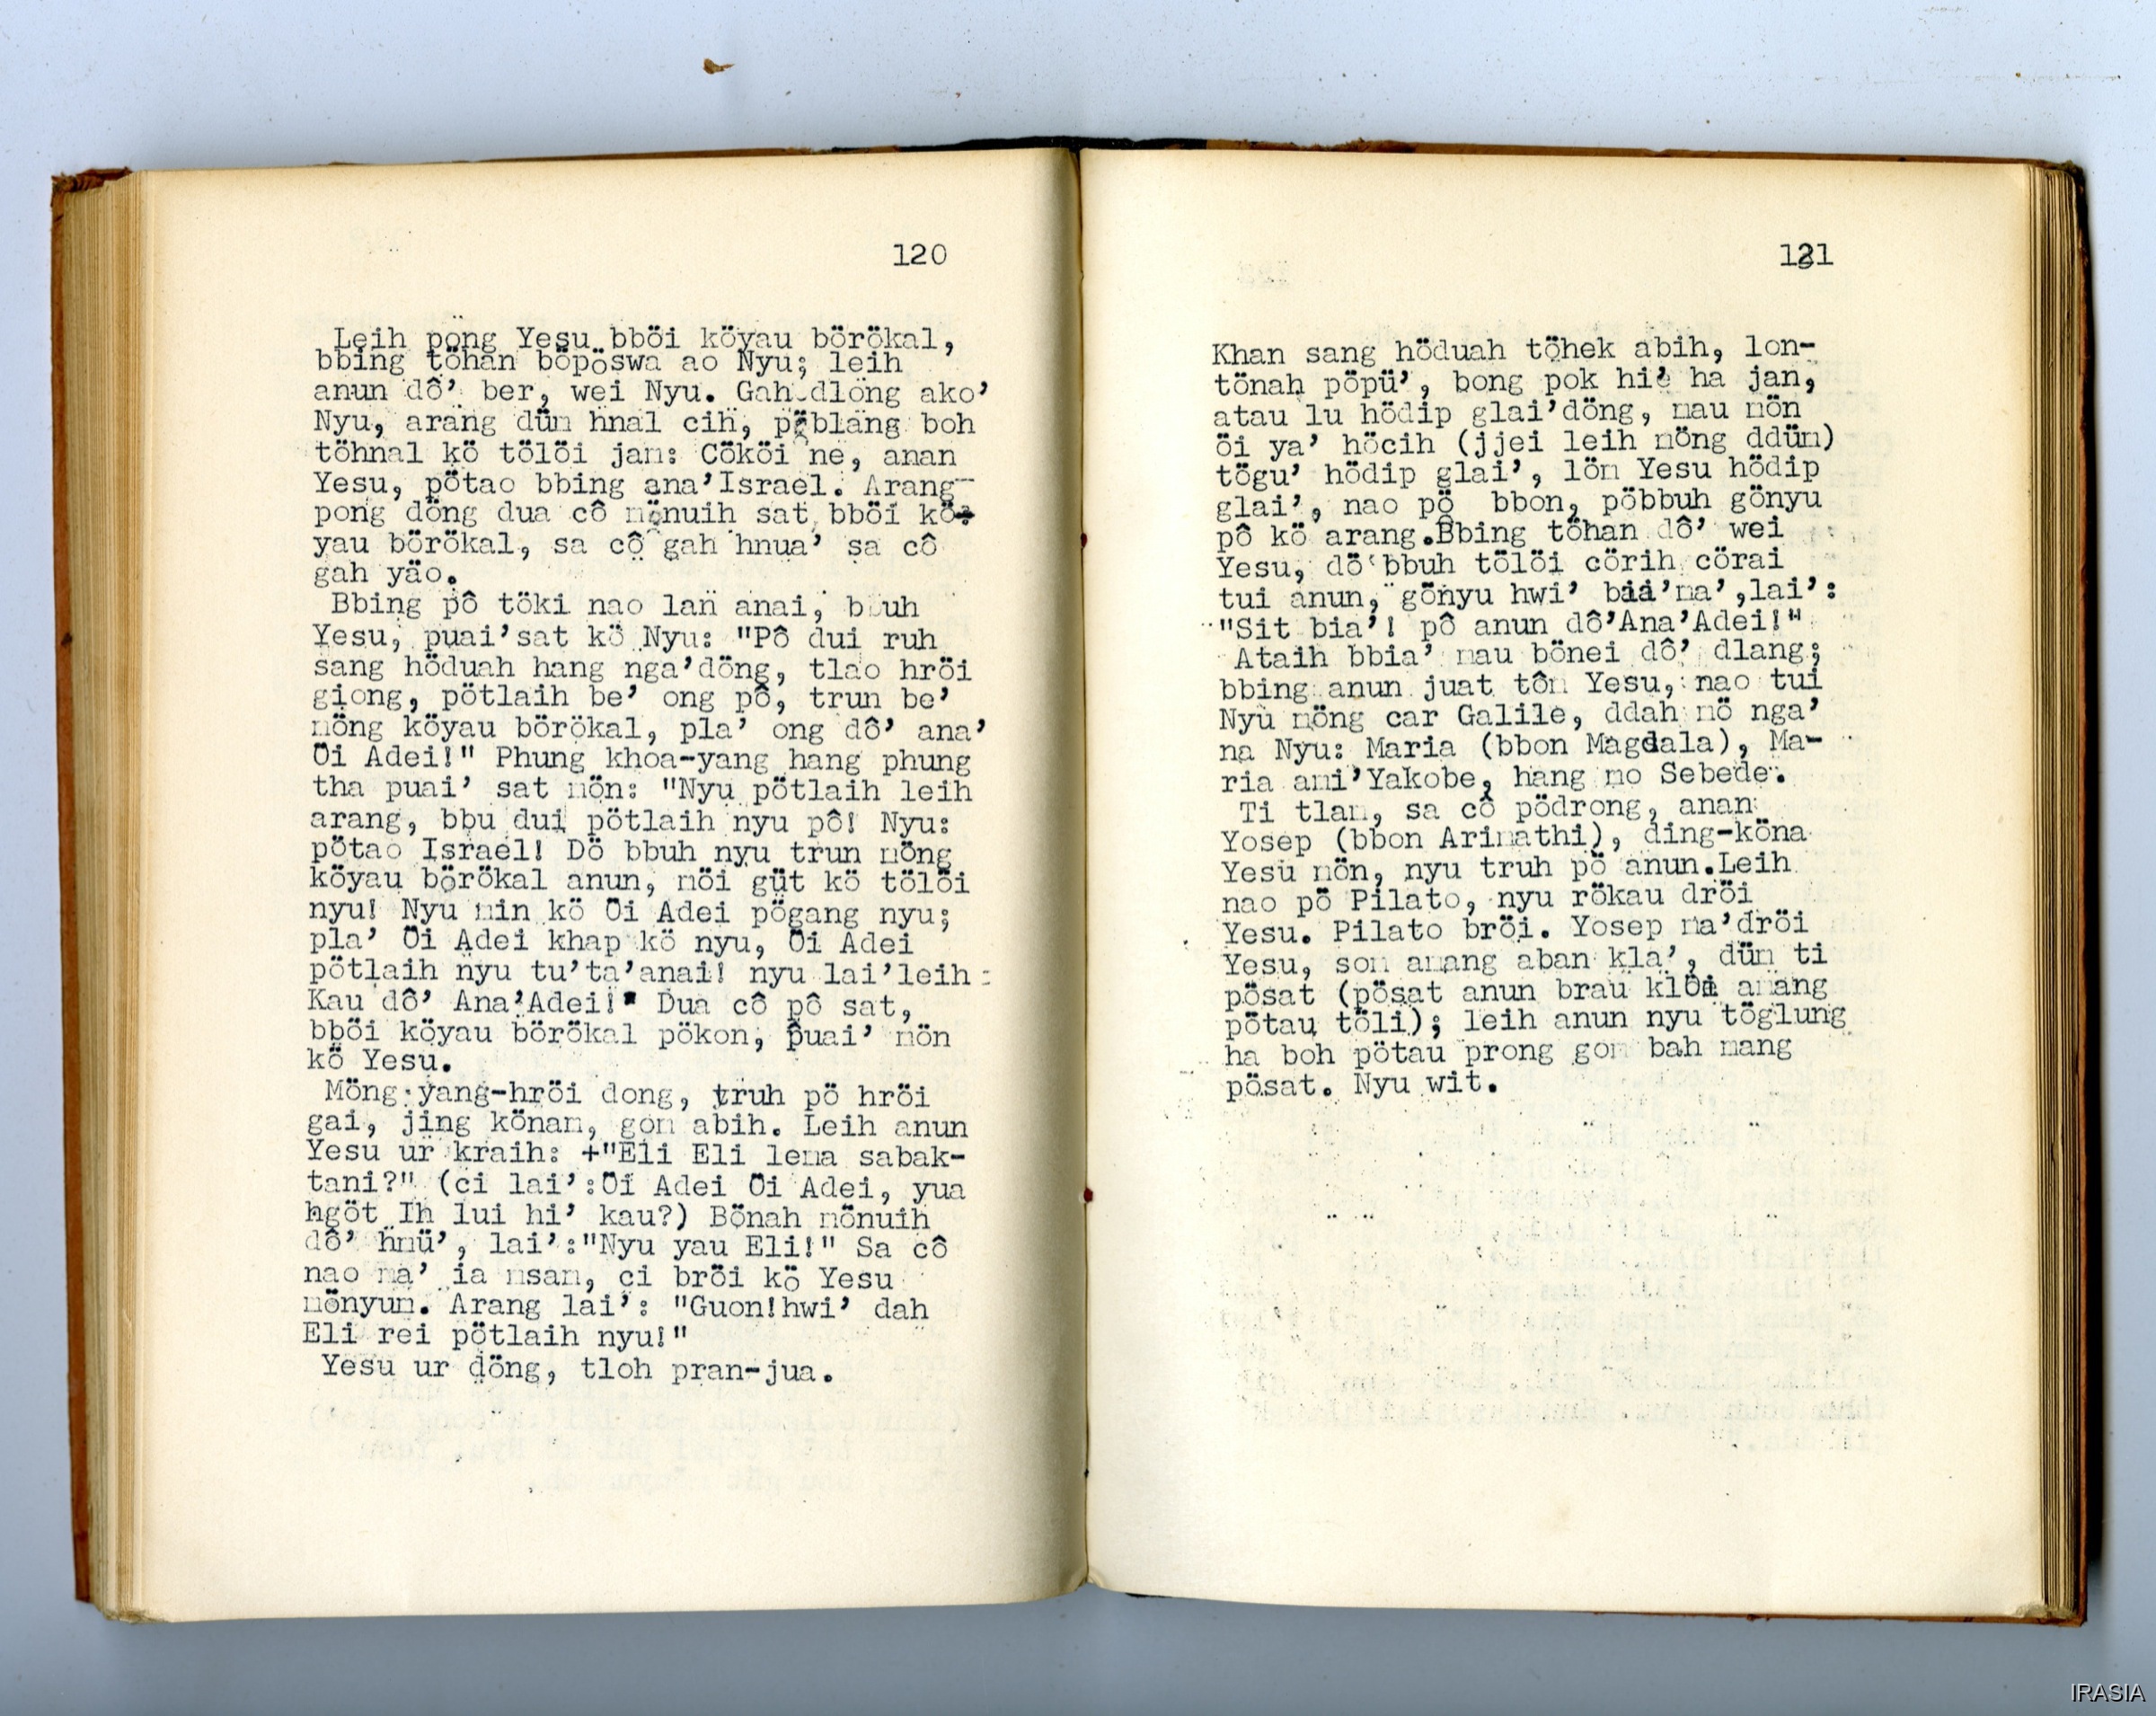 120
Leih pöng Yesu bböi köyau börökal,
bbing töhan böpöswa ao Nyu; leih
anun dô' ber, wei Nyu. Gah dlöng ako'
Nyu, arang düm hnal cih, pöblang boh
töhnal kö tölöi jam: Cököi ne, anan
Yesu, pötao bbing ana'Israel. Arang
pong döng dua cô mönuih sat bböi kö-
yau börökal, sa cô gah hnua' sa cô
gah yäo.
Bbing pô töki nao lan anai, bbuh
Yesu, puai'sat kö Nyu: "Pô dui ruh
sang höduah hang nga'döng, tlao hröi
giong, pötlaih be' ong pô, trun be'
möng köyau börökal, pla' ong dô' ana'
Öi Adei!" Phung khoa-yang hang phung
tha puai' sat mön: "Nyu pötlaih leih
arang, bbu dui pötlaih nyu pô! Nyu:
pötao Israel! Dö bbuh nyu trun möng
köyau börökal anun, möi güt kö tölöi
nyu! Nyu min kö Öi Adei pögang nyu;
pla' Öi Adei khap kö nyu, Öi Adei
pötlaih nyu tu'ta'anai! nyu lai'leih:
Kau dô' Ana'Adei!" Dua cô pô sat,
bböi köyau börökal pökon, puai' mön
kö Yesu.
Möng yang-hröi dong, truh pö hröi
gai, jing könam, gom abih. Leih anun
Yesu ur kraih: +"Eli Eli lema sabak-
tani?" (ci lai':Öi Adei Öi Adei, yua
hgöt Ih lui hi' kau?) Bönah mönuih
dô' hmü', lai':"Nyu yau Eli!" Sa cô
nao ma' ia msam, ci bröi kö Yesu
mönyum. Arang lai': "Guon!hwi' dah
Eli rei pötlaih nyu!"
Yesu ur döng, tloh pran-jua.
121
Khan sang höduah töhek abih, lon-
tönah pöpü', bong pok hie ha jan,
atau lu hödip glai'döng, mau mön
öi ya' höcih (jjei leih möng ddüm)
tögu' hödip glai', löm Yesu hödip
glai', nao pö bbon, pöbbuh gönyu
pô kö arang.Bbing töhan dô' wei
Yesu, dö bbuh tölöi cörih cörai
tui anun, gönyu hwi' bia'ma',lai':
"Sit bia'! pô anun dô'Ana'Adei!"
Ataih bbia' mau bönei dô' dlang;
bbing anun juat tôm Yesu, nao tui
Nyu möng car Galile, ddah mö nga'
na Nyu: Maria (bbon Magdala), Ma-
ria ami'Yakobe, hang mo Sebede.
Ti tlam, sa cô pödrong, anan
Yosep (bbon Arimathi), ding-köna
Yesu mön, nyu truh pö anun.Leih
nao pö Pilato, nyu rökau dröi
Yesu. Pilato bröi. Yosep ma'dröi
Yesu, som amang aban kla', düm ti
pösat (pösat anun brau klöm amang
pötau töli); leih anun nyu töglung
ha boh pötau prong gom bah mang
pösat. Nyu wit.
IRASIA